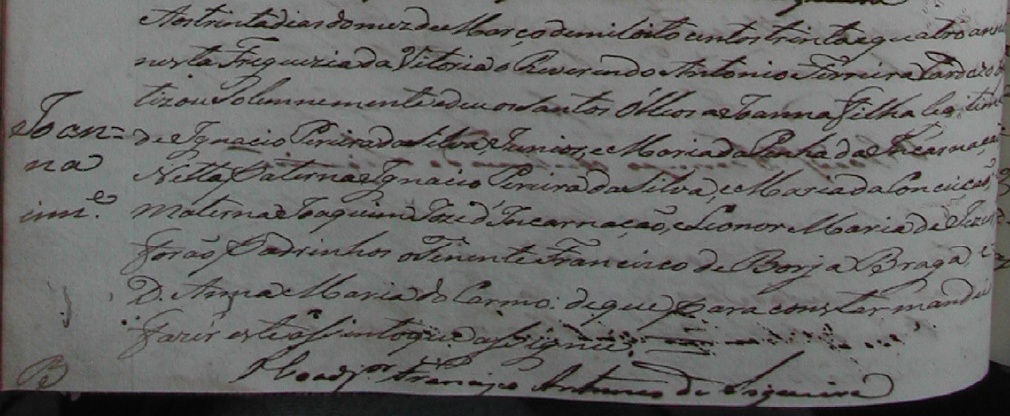 Aos trinta dias do mez de Março de mil oito centos trinta e quatro annos
nesta Freguezia da Vitoria o Reverendo Antonio Ferreira Cardozo
tizou Solemnemente e deu os Santos Oleos a Joanna filha legitima
Joan=
na
de Ignacio Pereira da Silva Junior, e Maria da Penha da Incarnação
Netta Paterna Ignacio Pereira da Silva, e Maria da Conceição
inn.e
Materna Joaquim Joze d'Incarnação, e Leonor Maria de Jezus
forão Padrinhos o Tenente Francisco de Borja Braga, e
D. Anna Maria do Carmo: de que para constar mandei
fazer este assento que assignei.
O Coadj.or Francisco Antunes de Siqueira